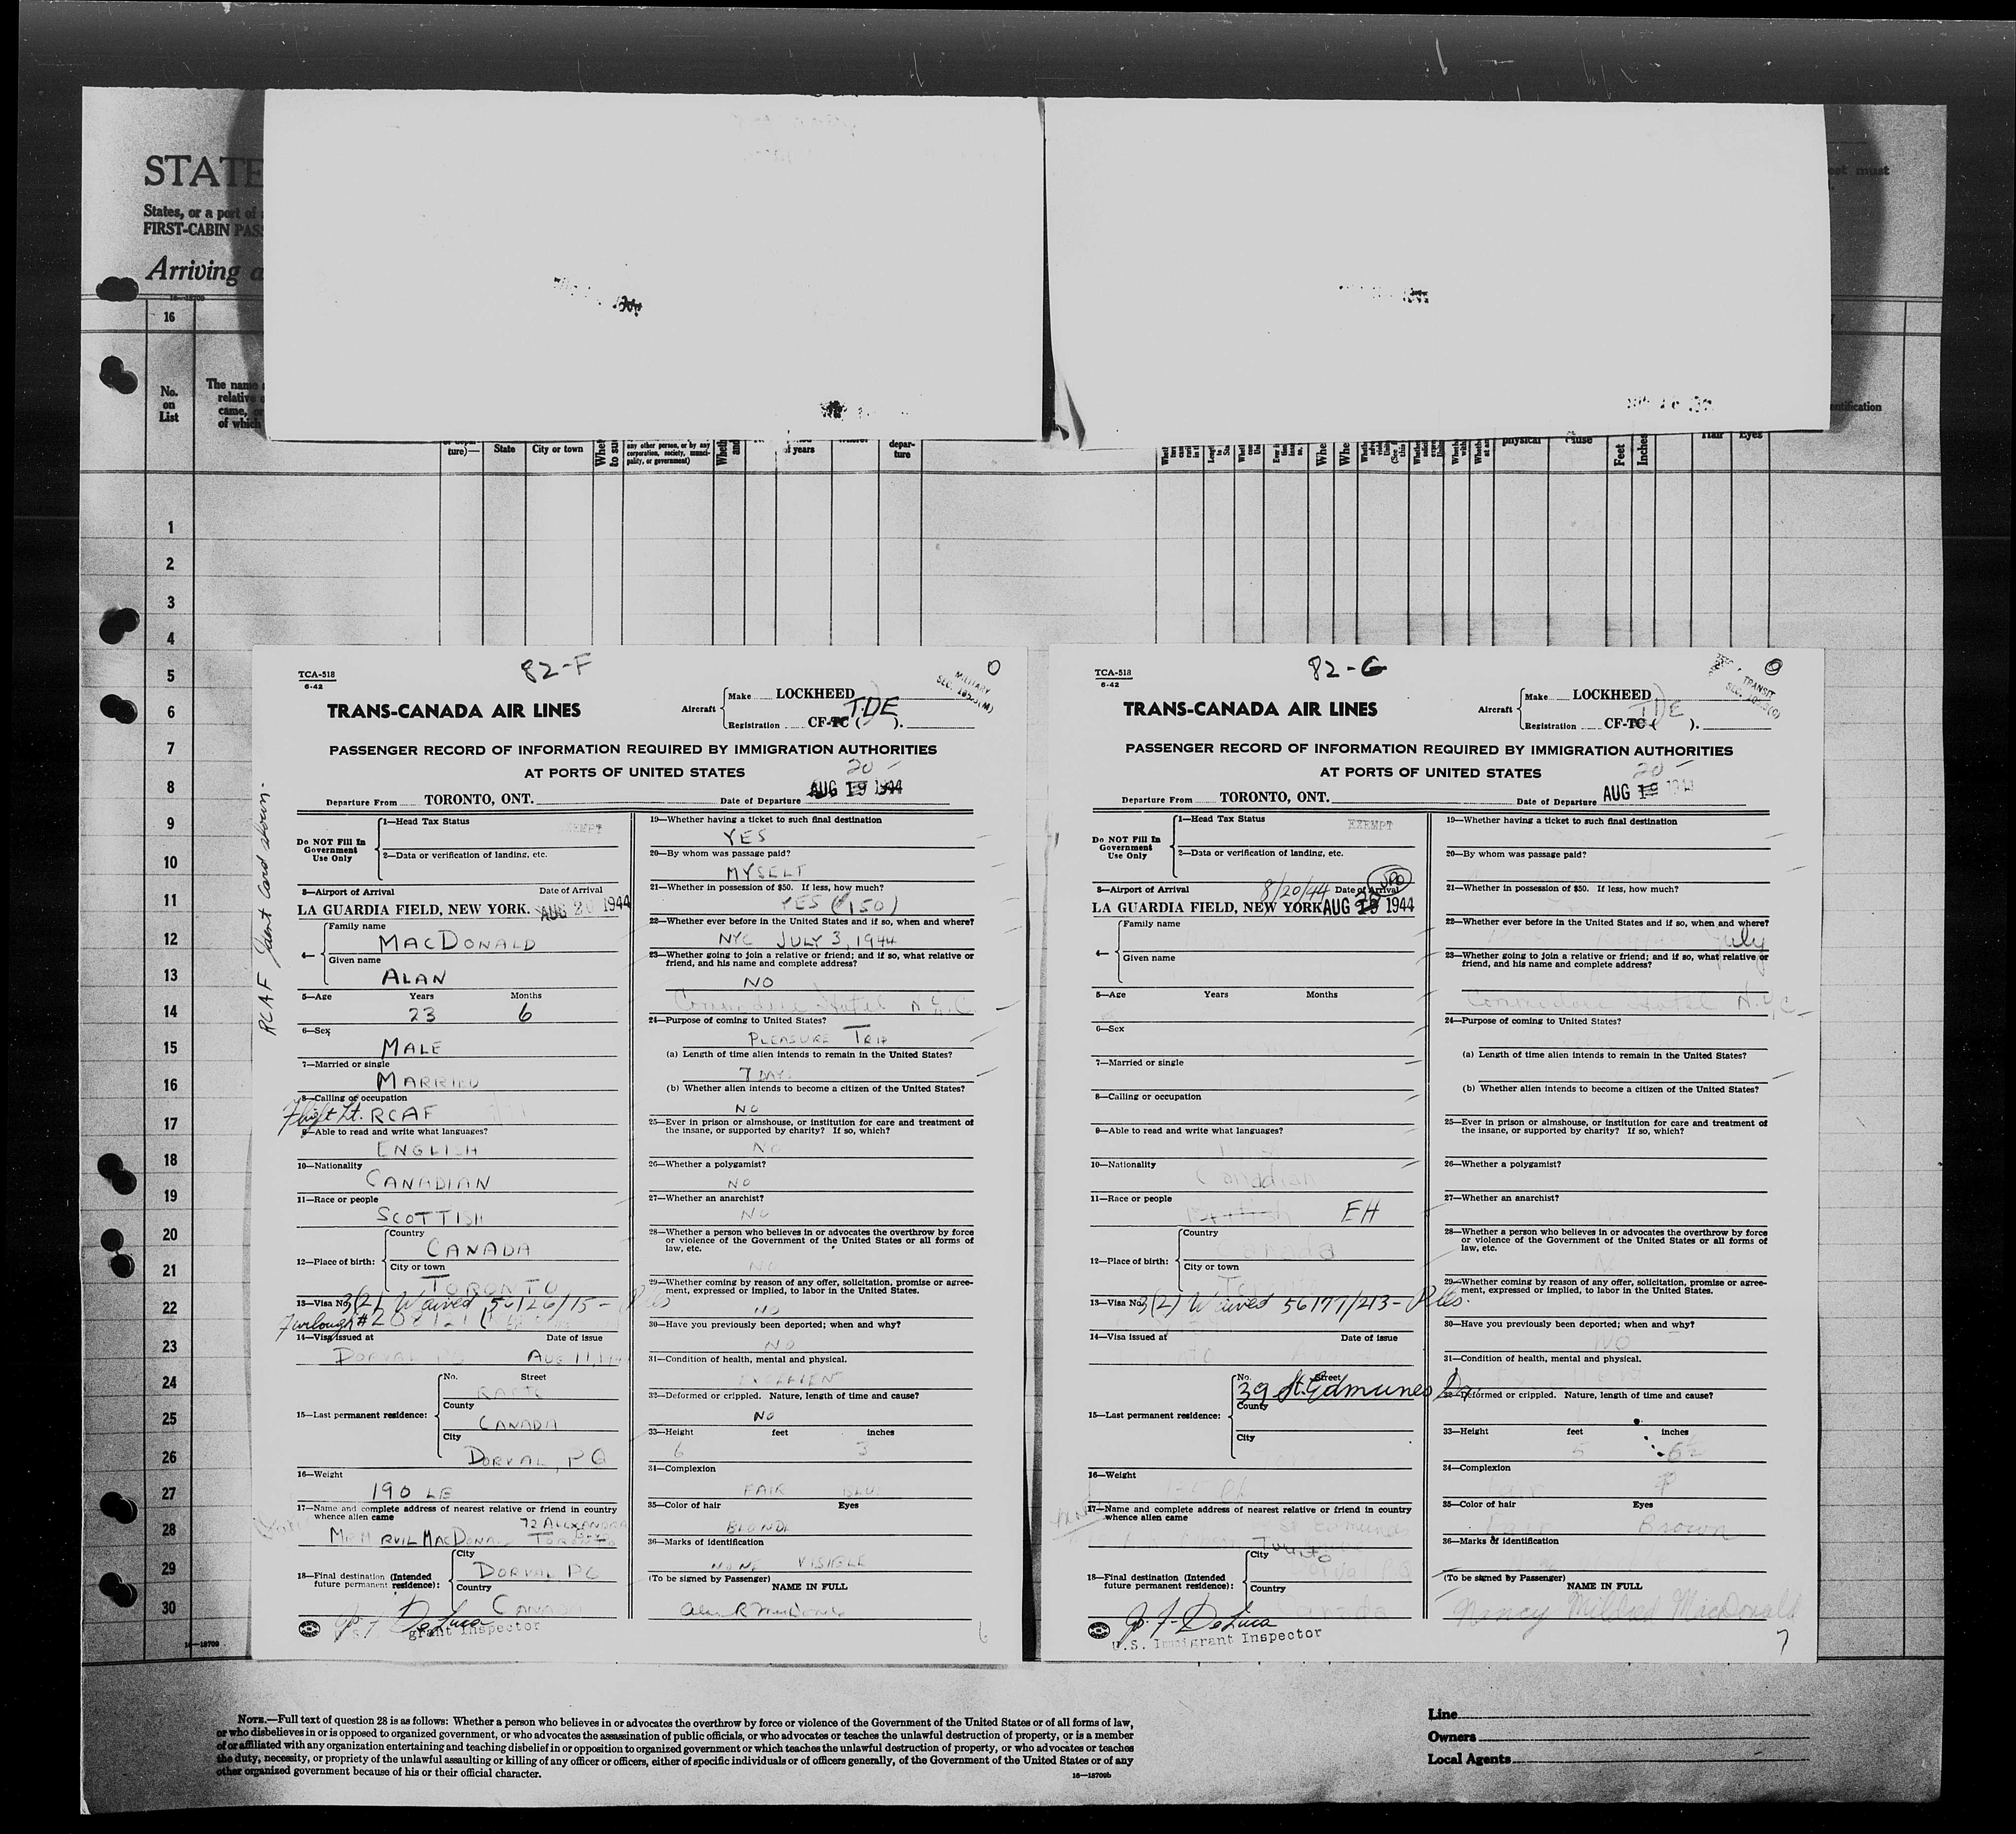 STATE
States, or a port of
FIRST-CABIN PASS
Arriving a
16—18709
16
No.
on
List
The name
relative
came, or
of which
ture)—
State
City or town
Whe
to su
any other person, or by any
corporation, society, munici-
pality, or government)
Wheth
and
of years
depar-
ture
must
physical
cause
Feet
Inches
Hair
Eyes
ntification
1
2
3
4
5
6
7
8
9
10
11
12
13
14
15
16
17
18
19
20
21
22
23
24
25
26
27
28
29
30
16—18709
RCAF Ident card shown-
TCA-518
6-42
82-F
MILITARY
Aircraft
Make LOCKHEED
Registration CF-TC ( TDE ).
TRANS-CANADA AIR LINES
PASSENGER RECORD OF INFORMATION REQUIRED BY IMMIGRATION AUTHORITIES
AT PORTS OF UNITED STATES
20
Departure From TORONTO, ONT.
Date of Departure AUG 19 1944
Do NOT Fill In
Government
Use Only
1—Head Tax Status
EXEMPT
2—Data or verification of landing, etc.
3—Airport of Arrival
Date of Arrival
LA GUARDIA FIELD, NEW YORK. AUG 20 1944
4—
Family name
MACDONALD
Given name
ALAN
5—Age Years Months
23 6
6—Sex
MALE
7—Married or single
MARRIED
8—Calling or occupation
Flight Lt. RCAF
9—Able to read and write what languages?
ENGLISH
10—Nationality
CANADIAN
11—Race or people
SCOTTISH
12—Place of birth:
Country
CANADA
City or town
TORONTO
13—Visa No. 3(2) Waived 56126/15-
Furlough #
14—Visa issued at Date of issue
DORVAL AUG 11
15—Last permanent residence:
No. Street
County
CANADA
City
DORVAL, PQ
16—Weight
190 LB
17—Name and complete address of nearest relative or friend in country
whence alien came
72 ALEXANDRA
MACDONA TORONTO
18—Final destination (Intended
future permanent residence):
City
DORVAL PQ
Country
CANADA
J. F. DeLuca
grant Inspector
19—Whether having a ticket to such final destination
YES
20—By whom was passage paid?
MYSELF
21—Whether in possession of $50. If less, how much?
YES (150)
22—Whether ever before in the United States and if so, when and where?
NYC JULY 3, 1944
23—Whether going to join a relative or friend; and if so, what relative or
friend, and his name and complete address?
NO
Commodore Hotel N.Y.C
24—Purpose of coming to United States?
PLEASURE TRIP
(a) Length of time alien intends to remain in the United States?
7 DAYS
(b) Whether alien intends to become a citizen of the United States?
NO
25—Ever in prison or almshouse, or institution for care and treatment of
the insane, or supported by charity? If so, which?
NO
26—Whether a polygamist?
NO
27—Whether an anarchist?
NO
28—Whether a person who believes in or advocates the overthrow by force
or violence of the Government of the United States or all forms of
law, etc.
NO
29—Whether coming by reason of any offer, solicitation, promise or agree-
ment, expressed or implied, to labor in the United States.
NO
30—Have you previously been deported; when and why?
NO
31—Condition of health, mental and physical.
32—Deformed or crippled. Nature, length of time and cause?
NO
33—Height feet inches
6 3
34—Complexion
FAIR
35—Color of hair Eyes
BLONDE
36—Marks of identification
NONE VISIBLE
(To be signed by Passenger)
NAME IN FULL
Alan R MacDonald
6
TCA-518
6-42
82-G
TRANSIT
Aircraft
Make LOCKHEED
Registration CF-TC ( TDE ).
TRANS-CANADA AIR LINES
PASSENGER RECORD OF INFORMATION REQUIRED BY IMMIGRATION AUTHORITIES
AT PORTS OF UNITED STATES
20
Departure From TORONTO, ONT.
Date of Departure AUG 19 1944
Do NOT Fill In
Government
Use Only
1—Head Tax Status
EXEMPT
2—Data or verification of landing, etc.
3—Airport of Arrival
8/20/44 Date of Arrival
LA GUARDIA FIELD, NEW YORK AUG 19 1944
4—
Family name
Given name
5—Age Years Months
6—Sex
7—Married or single
8—Calling or occupation
9—Able to read and write what languages?
10—Nationality
Canadian
11—Race or people
British EH
12—Place of birth:
Country
Canada
City or town
13—Visa No. 3(2) Waived 56177/213-
14—Visa issued at Date of issue
15—Last permanent residence:
No. Street
39 St. Edmunds Dr.
County
City
16—Weight
17—Name and complete address of nearest relative or friend in country
whence alien came
St Edmunds
Toronto
18—Final destination (Intended
future permanent residence):
City
Country
Canada
J. F. DeLuca
U.S. Immigrant Inspector
19—Whether having a ticket to such final destination
20—By whom was passage paid?
21—Whether in possession of $50. If less, how much?
22—Whether ever before in the United States and if so, when and where?
July
23—Whether going to join a relative or friend; and if so, what relative or
friend, and his name and complete address?
Commodore Hotel N.Y.C
24—Purpose of coming to United States?
(a) Length of time alien intends to remain in the United States?
(b) Whether alien intends to become a citizen of the United States?
25—Ever in prison or almshouse, or institution for care and treatment of
the insane, or supported by charity? If so, which?
26—Whether a polygamist?
27—Whether an anarchist?
28—Whether a person who believes in or advocates the overthrow by force
or violence of the Government of the United States or all forms of
law, etc.
29—Whether coming by reason of any offer, solicitation, promise or agree-
ment, expressed or implied, to labor in the United States.
30—Have you previously been deported; when and why?
NO
31—Condition of health, mental and physical.
32—Deformed or crippled. Nature, length of time and cause?
33—Height feet inches
5 6½
34—Complexion
35—Color of hair Eyes
Fair Brown
36—Marks of identification
(To be signed by Passenger)
NAME IN FULL
Nancy Mildred MacDonald
7
NOTE.—Full text of question 28 is as follows: Whether a person who believes in or advocates the overthrow by force or violence of the Government of the United States or of all forms of law,
or who disbelieves in or is opposed to organized government, or who advocates the assassination of public officials, or who advocates or teaches the unlawful destruction of property, or is a member
of or affiliated with any organization entertaining and teaching disbelief in or opposition to organized government or which teaches the unlawful destruction of property, or who advocates or teaches
the duty, necessity, or propriety of the unlawful assaulting or killing of any officer or officers, either of specific individuals or of officers generally, of the Government of the United States or of any
other organized government because of his or their official character.
16—18709b
Line
Owners
Local Agents